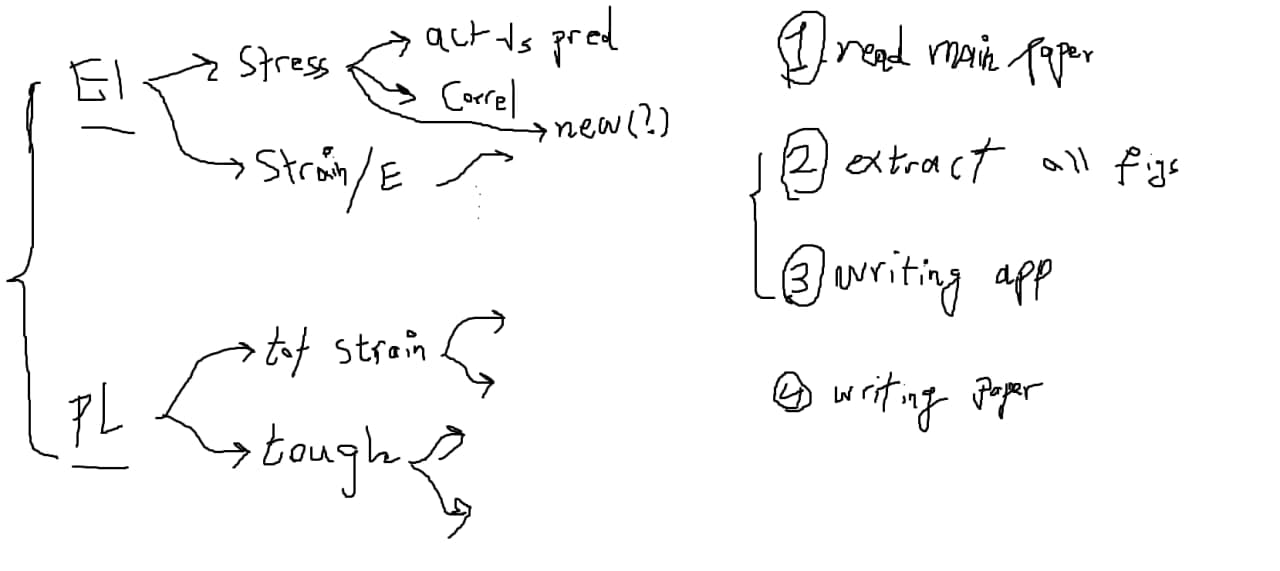 El
Stress
act vs pred
Correl
new(?)
Strain/E
PL
tot strain
tough
1 read main paper
2 extract all figs
3 writing app
4 writing paper